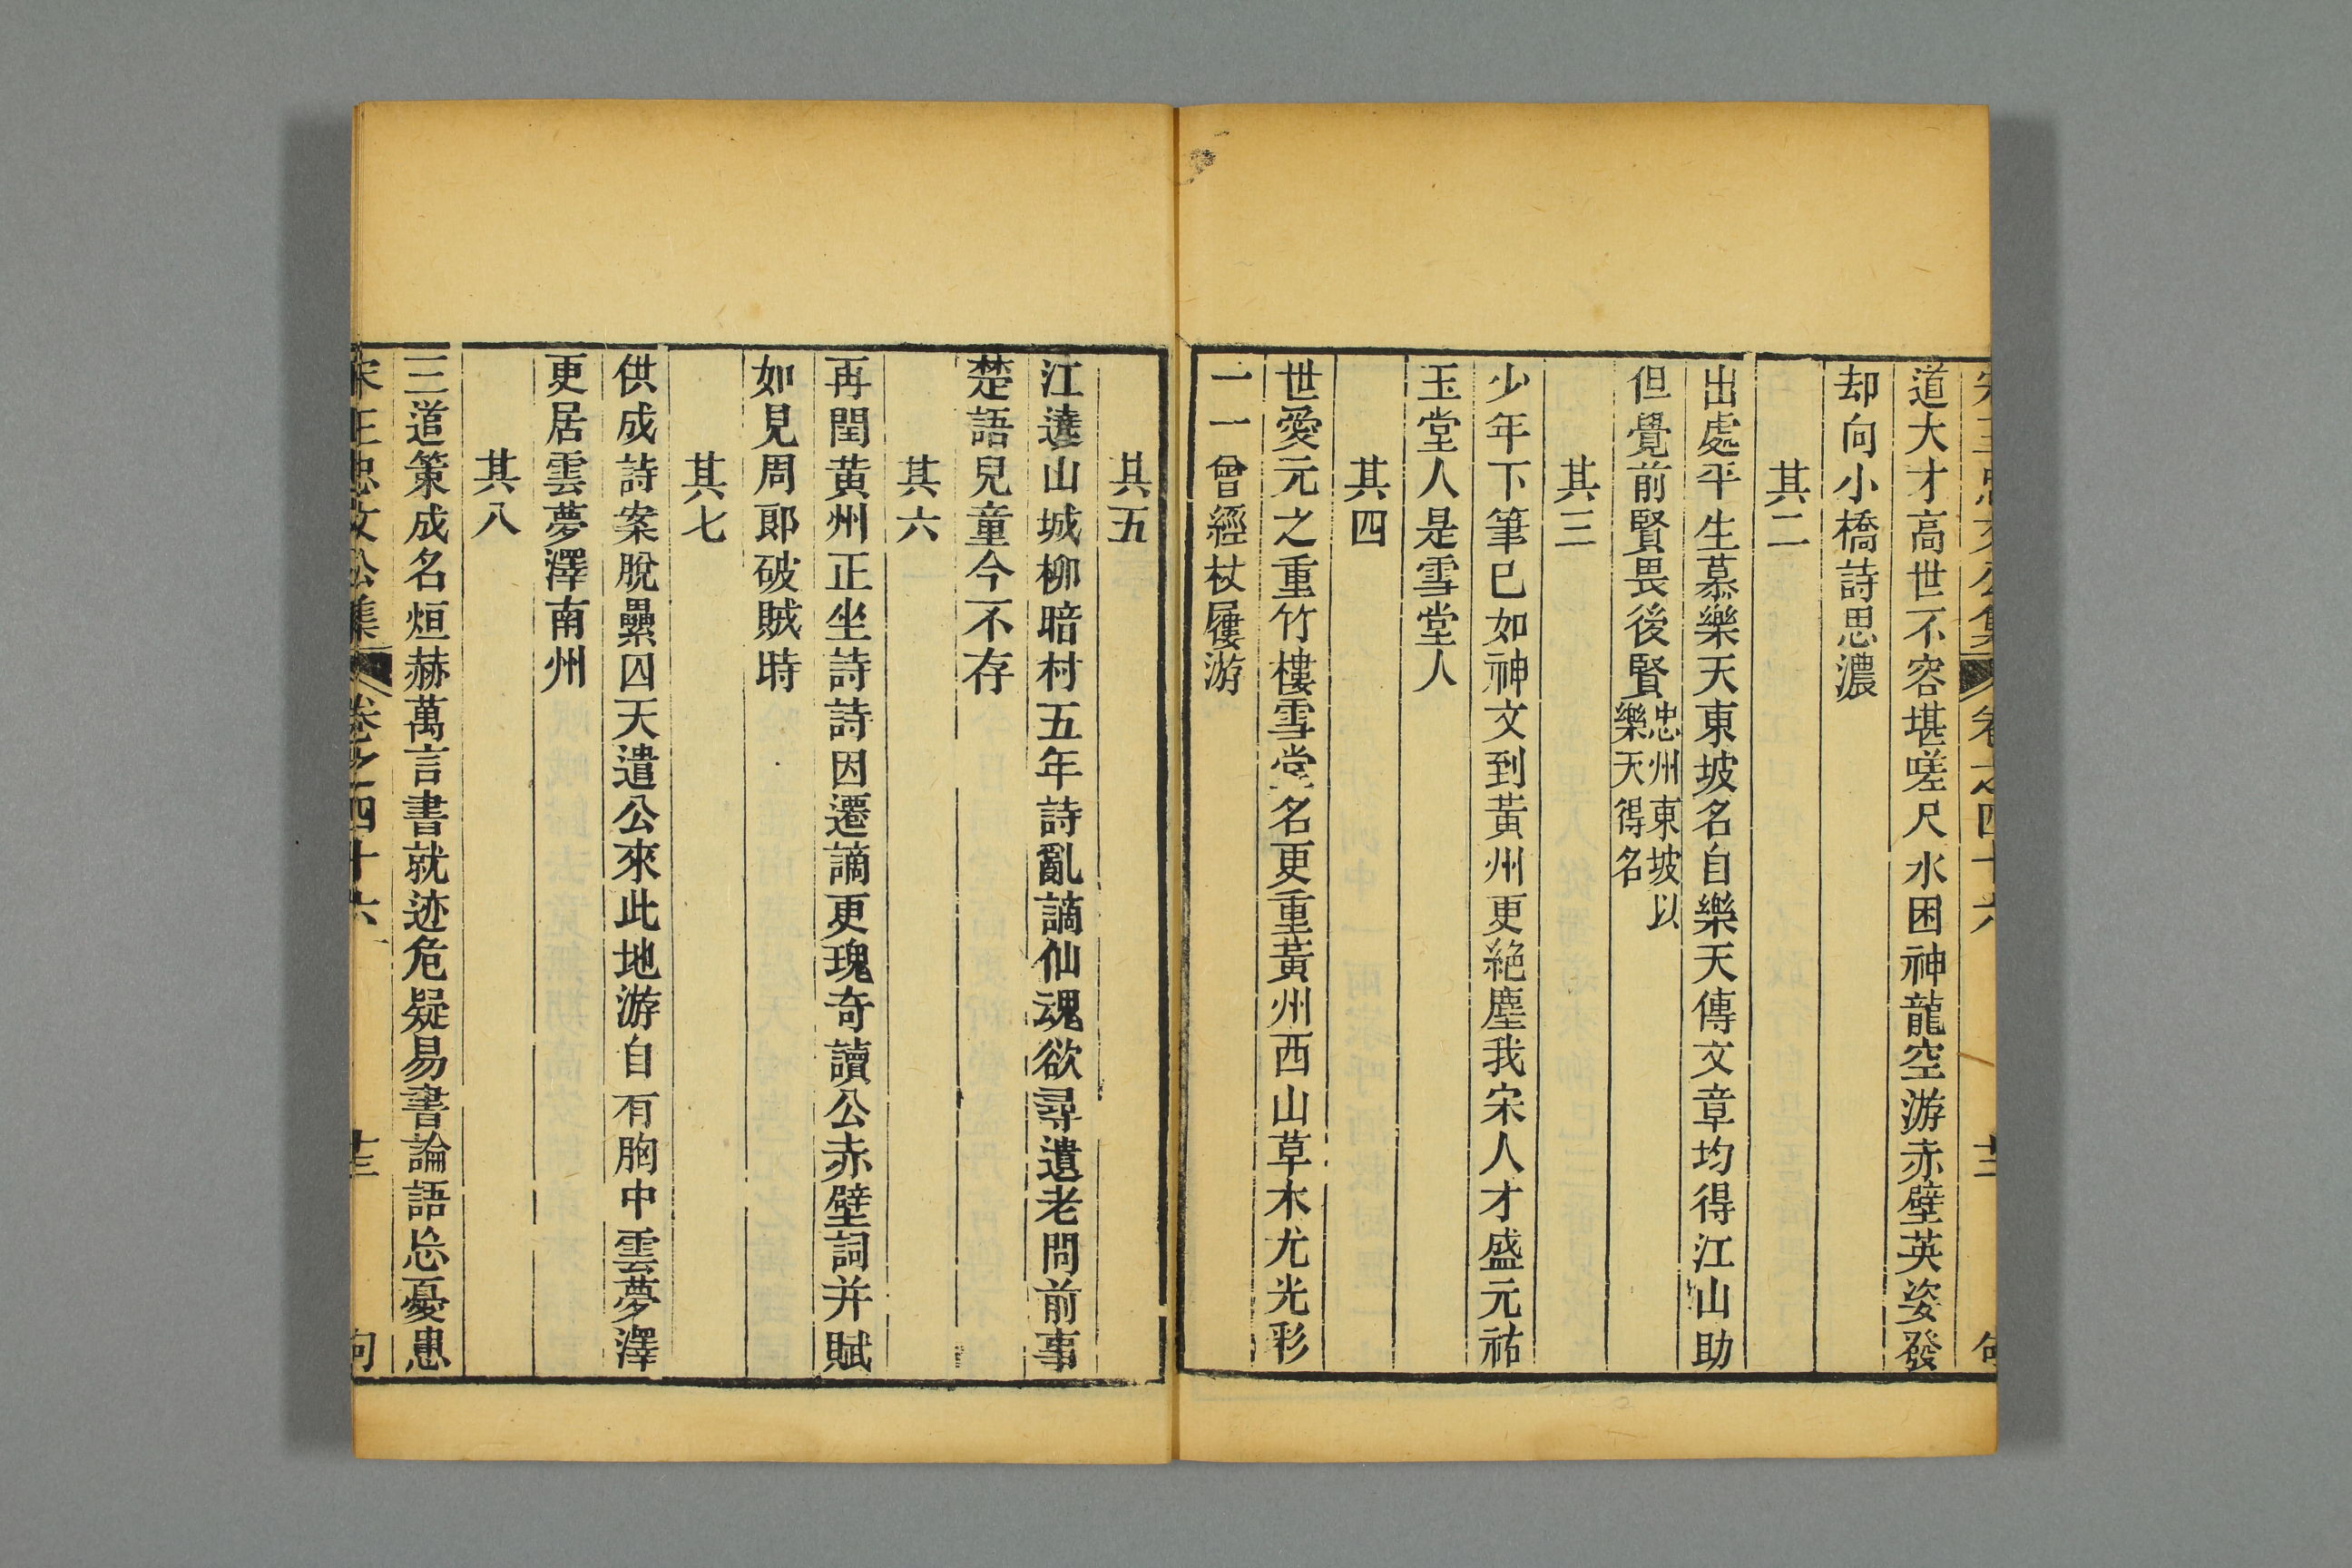 宋王忠文公集 卷之四十六 十二
道大才高世不容堪嗟尺水困神龍空游赤壁英姿發
却向小橋詩思濃
其二
出處平生慕樂天東坡名自樂天傳文章均得江山助
但覺前賢畏後賢忠州東坡以
樂天得名
其三
少年下筆已如神文到黃州更絕塵我宋人才盛元祐
玉堂人是雪堂人
其四
世愛元之重竹樓雪堂名更重黃州西山草木尤光彩
一一曾經杖屨游
其五
江遶山城柳暗村五年詩亂謫仙魂欲尋遺老問前事
楚語兒童今不存
其六
再閏黃州正坐詩詩因遷謫更瑰奇讀公赤壁詞并賦
如見周郎破賊時
其七
供成詩案脫纍囚天遣公來此地游自有胸中雲夢澤
更居雲夢澤南州
其八
三道策成名烜赫萬言書就迹危疑易書論語忘憂患
宋王忠文公集 卷之四十六 十三